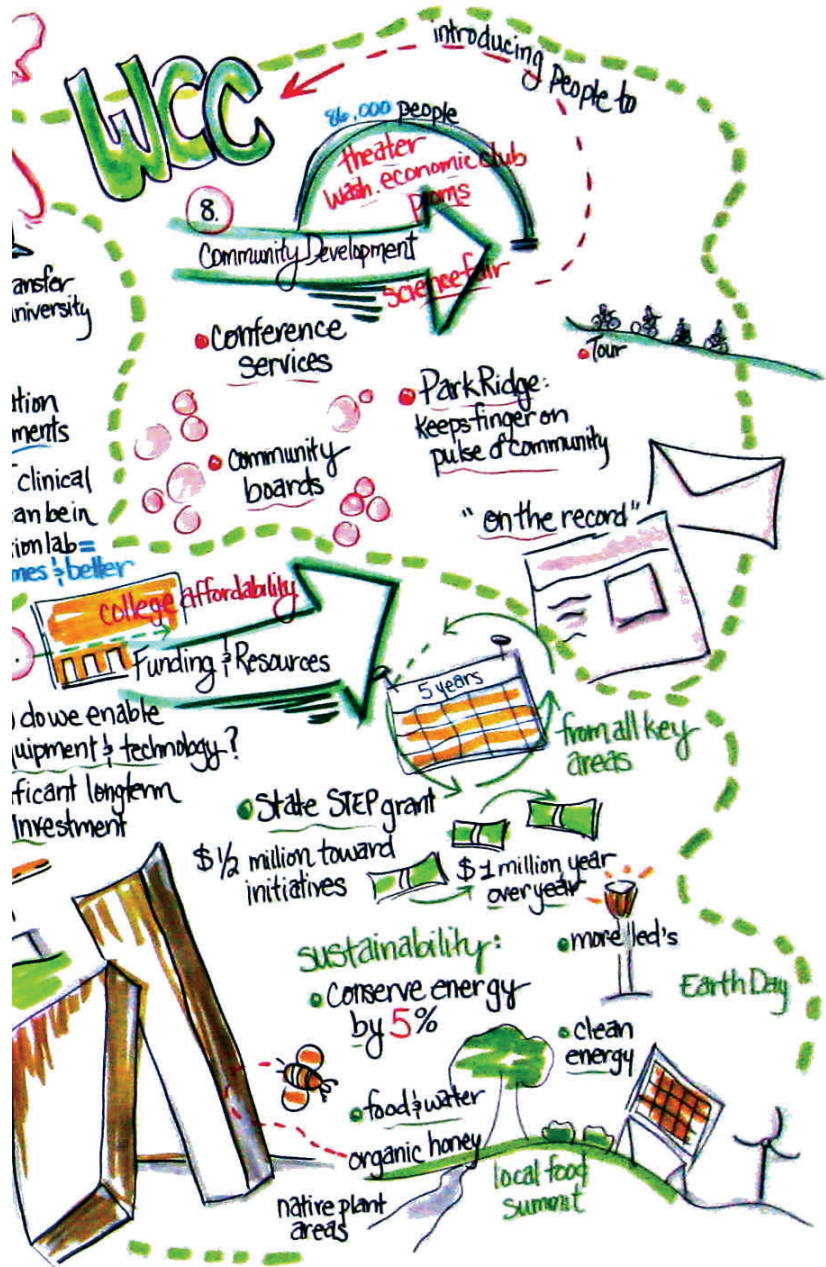 introducing
people to
WCC
86,000 people
theater
wash. economic club
proms
8.
Community Development
science fair
ansfer
niversity
Conference
services
Tour
ParkRidge:
keeps finger on
pulse of community
ation
ments
clinical
an be in
ion lab=
mes & better
Community
boards
"on the record"
college affordability
Funding & Resources
5 years
do we enable
uipment & technology?
ficant longterm
Investment
from all key
areas
State STEP grant
$ 1/2 million toward
initiatives
$ 1 million year
over year
sustainability:
Conserve energy
by 5%
more led's
Earth Day
clean
energy
food & water
organic honey
local food
summit
native plant
areas